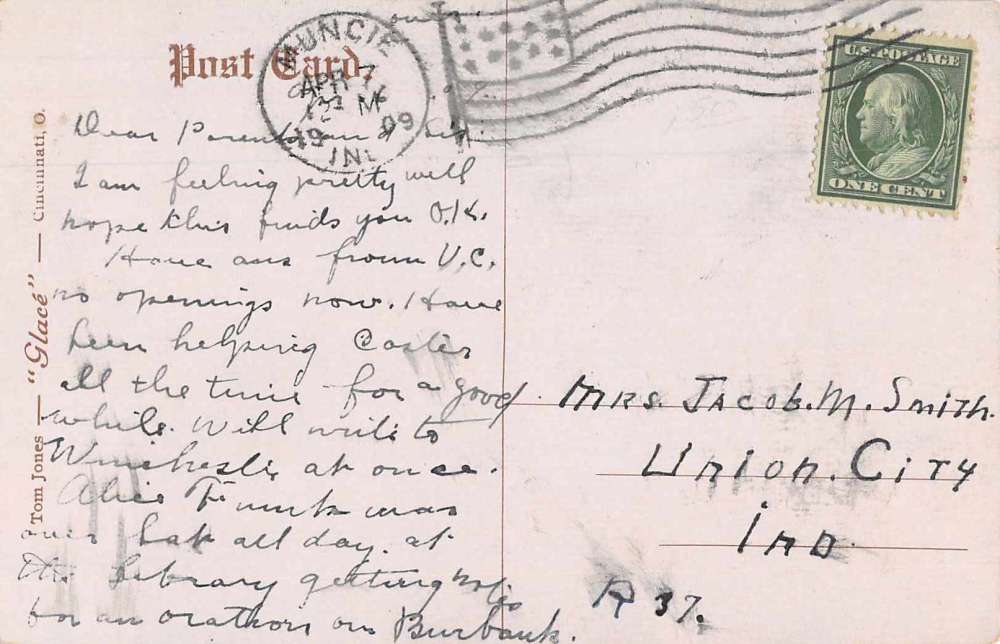 Post Card.
MUNCIE
APR 7
M
19 09
IND
U.S. POSTAGE
ONE CENT
Tom Jones — "Glacé" — Cincinnati, O.
Dear Parents and
I am feeling pretty well
hope this finds you O.K.
Have ans from U.C.
no openings now. Have
been helping
all the time for a good
while. Will write to
Winchester at once.
Alice Funk was
over Sat all day. at
the Library getting notes
for an oration on Burbank.
MRS. JACOB. M. SMITH.
UNION. CITY
IND.
R 37.